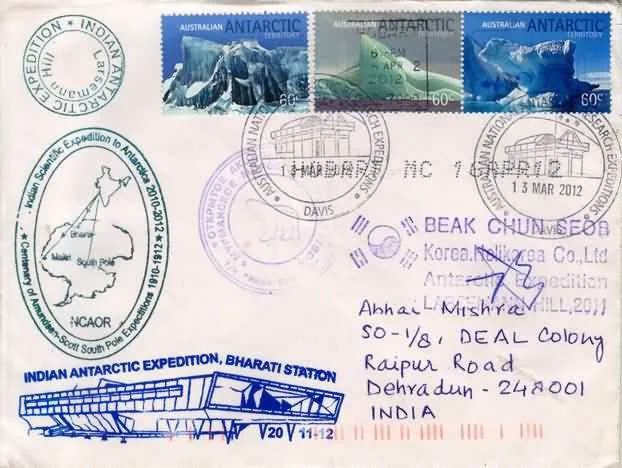 INDIAN ANTARCTIC EXPEDITION
Larsemann Hill
AUSTRALIAN ANTARCTIC TERRITORY
60c
AUSTRALIAN ANTARCTIC TERRITORY
60c
AUSTRALIAN ANTARCTIC TERRITORY
60c
2012
AUSTRALIAN NATIONAL RESEARCH EXPEDITIONS
13 MAR
DAVIS
HOBART MC 16APR12
AUSTRALIAN NATIONAL RESEARCH EXPEDITIONS
13 MAR 2012
DAVIS
Indian Scientific Expedition to Antarctica 2010-2012
Centenary of Amundsen-Scott South Pole Expeditions 1910-1912
Bharati
Maitri South Pole
NCAOR
BEAK CHUN SEOB
Korea.Helikorea Co.,Ltd
Antarctic Expedition
LARSEMANN HILL,2011
Abhai Mishra
SO-1/8, DEAL Colony
Raipur Road
Dehradun - 248001
INDIA
INDIAN ANTARCTIC EXPEDITION, BHARATI STATION
2011-12